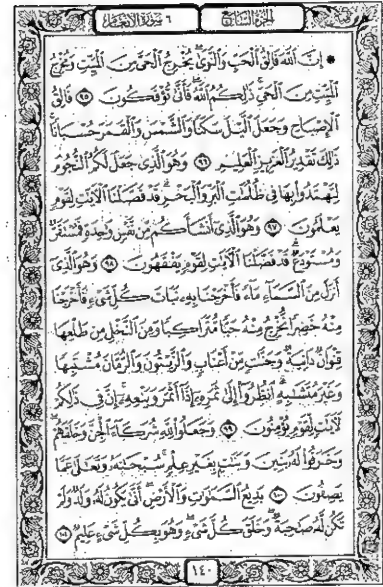 الجُزْءُ السَّابِعُ ٦ سُورَةُ الأَنْعَامِ
* إِنَّ ٱللَّهَ فَالِقُ ٱلْحَبِّ وَٱلنَّوَىٰ يُخْرِجُ ٱلْحَىَّ مِنَ ٱلْمَيِّتِ وَمُخْرِجُ
ٱلْمَيِّتِ مِنَ ٱلْحَىِّ ذَٰلِكُمُ ٱللَّهُ فَأَنَّىٰ تُؤْفَكُونَ ٩٥ فَالِقُ
ٱلْإِصْبَاحِ وَجَعَلَ ٱلَّيْلَ سَكَنًا وَٱلشَّمْسَ وَٱلْقَمَرَ حُسْبَانًا
ذَٰلِكَ تَقْدِيرُ ٱلْعَزِيزِ ٱلْعَلِيمِ ٩٦ وَهُوَ ٱلَّذِى جَعَلَ لَكُمُ ٱلنُّجُومَ
لِتَهْتَدُوا۟ بِهَا فِى ظُلُمَٰتِ ٱلْبَرِّ وَٱلْبَحْرِ قَدْ فَصَّلْنَا ٱلْءَايَٰتِ لِقَوْمٍ
يَعْلَمُونَ ٩٧ وَهُوَ ٱلَّذِىٓ أَنشَأَكُم مِّن نَّفْسٍ وَٰحِدَةٍ فَمُسْتَقَرٌّ
وَمُسْتَوْدَعٌ قَدْ فَصَّلْنَا ٱلْءَايَٰتِ لِقَوْمٍ يَفْقَهُونَ ٩٨ وَهُوَ ٱلَّذِىٓ
أَنزَلَ مِنَ ٱلسَّمَآءِ مَآءً فَأَخْرَجْنَا بِهِۦ نَبَاتَ كُلِّ شَىْءٍ فَأَخْرَجْنَا
مِنْهُ خَضِرًا نُّخْرِجُ مِنْهُ حَبًّا مُّتَرَاكِبًا وَمِنَ ٱلنَّخْلِ مِن طَلْعِهَا
قِنْوَانٌ دَانِيَةٌ وَجَنَّٰتٍ مِّنْ أَعْنَابٍ وَٱلزَّيْتُونَ وَٱلرُّمَّانَ مُشْتَبِهًا
وَغَيْرَ مُتَشَٰبِهٍ ٱنظُرُوٓا۟ إِلَىٰ ثَمَرِهِۦٓ إِذَآ أَثْمَرَ وَيَنْعِهِۦٓ إِنَّ فِى ذَٰلِكُمْ
لَءَايَٰتٍ لِّقَوْمٍ يُؤْمِنُونَ ٩٩ وَجَعَلُوا۟ لِلَّهِ شُرَكَآءَ ٱلْجِنَّ وَخَلَقَهُمْ
وَخَرَقُوا۟ لَهُۥ بَنِينَ وَبَنَٰتٍۭ بِغَيْرِ عِلْمٍ سُبْحَٰنَهُۥ وَتَعَٰلَىٰ عَمَّا
يَصِفُونَ ١٠٠ بَدِيعُ ٱلسَّمَٰوَٰتِ وَٱلْأَرْضِ أَنَّىٰ يَكُونُ لَهُۥ وَلَدٌ وَلَمْ
تَكُن لَّهُۥ صَٰحِبَةٌ وَخَلَقَ كُلَّ شَىْءٍ وَهُوَ بِكُلِّ شَىْءٍ عَلِيمٌ ١٠١
١٤٠